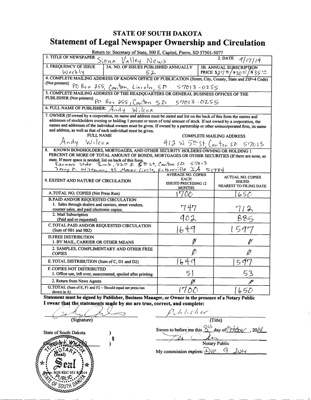 STATE OF SOUTH DAKOTA
Statement of Legal Newspaper Ownership and Circulation
Return to: Secretary of State, 500 E. Capitol, Pierre, SD 57501-5077
1. TITLE OF NEWSPAPER Sioux Valley News
2. DATE 9/17/14
3. FREQUENCY OF ISSUE Weekly
3A. NO. OF ISSUES PUBLISHED ANNUALLY 52
3B. ANNUAL SUBSCRIPTION PRICE
4. COMPLETE MAILING ADDRESS OF KNOWN OFFICE OF PUBLICATION (Street, City, County, State and ZIP+4 Code) (Not printers)
PO Box 255, Canton, Lincoln, SD 57013-0255
5. COMPLETE MAILING ADDRESS OF THE HEADQUARTERS OR GENERAL BUSINESS OFFICES OF THE PUBLISHER (Not printer)
PO Box 255, Canton SD 57013-0255
6. FULL NAME OF PUBLISHER: Andy Wilcox
7. OWNER (If owned by a corporation, its name and address must be stated and list on the back of this form the names and addresses of stockholders owning or holding 1 percent or more of total amount of stock. If not owned by a corporation, the names and addresses of the individual owners must be given. If owned by a partnership or other unincorporated firm, its name and address, as well as that of each individual must be given.
FULL NAME
COMPLETE MAILING ADDRESS
Andy Wilcox
912 W 5th St, Canton SD 57013
8. KNOWN BONDHOLDERS, MORTGAGEES, AND OTHER SECURITY HOLDERS OWNING OR HOLDING 1 PERCENT OR MORE OF TOTAL AMOUNT OF BONDS, MORTGAGES OR OTHER SECURITIES (If there are none, so state. If more space is needed, list on back of this form)
Farmers State Bank, St, Canton, SD 57013
9. EXTENT AND NATURE OF CIRCULATION
AVERAGE NO. COPIES EACH ISSUED PRECEDING 12 MONTHS
ACTUAL NO. COPIES ISSUED NEAREST TO FILING DATE
A. TOTAL NO. COPIES (Net Press Run) 1700 1650
B. PAID AND/OR REQUESTED CIRCULATION
1. Sales through dealers and carriers, street vendors, counter sales, and paid electronic copies. 747 712
2. Mail Subscription (Paid and/or requested) 902 885
C. TOTAL PAID AND/OR REQUESTED CIRCULATION (Sum of 9B1 and 9B2) 1649 1597
D. FREE DISTRIBUTION
1. BY MAIL, CARRIER OR OTHER MEANS Ø Ø
2. SAMPLES, COMPLIMENTARY AND OTHER FREE COPIES Ø Ø
E. TOTAL DISTRIBUTION (Sum of C, D1 and D2) 1649 1597
F. COPIES NOT DISTRIBUTED
1. Office use, left over, unaccounted, spoiled after printing 51 53
2. Return from News Agents Ø Ø
G. TOTAL (Sum of E, F1 and F2 - Should equal net press run shown in A) 1700 1650
Statement must be signed by Publisher, Business Manager, or Owner in the presence of a Notary Public
I swear that the statements made by me are true, correct, and complete:
Publisher
(Signature)
(Title)
State of South Dakota )
§
)
Sworn to before me this day of October, 2014
(Seal)
Notary Public
My commission expires: